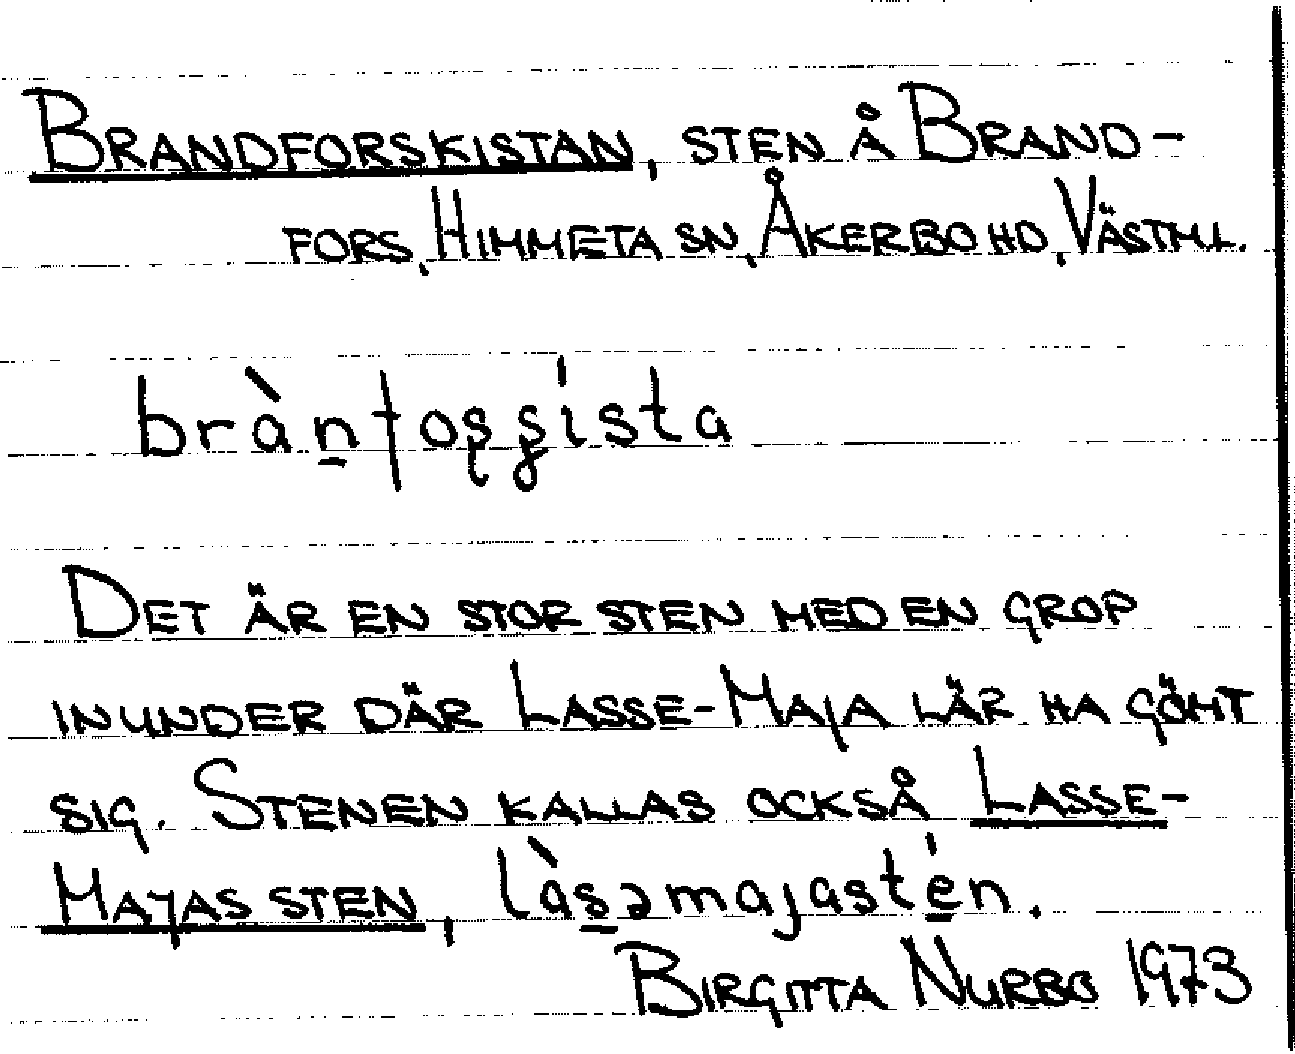 BRANDFORSKISTAN, STEN Å BRAND-
FORS, HIMMETA SN, ÅKERBO HD, VÄSTML.
brànfosşísta
DET ÄR EN STOR STEN MED EN GROP
INUNDER DÄR LASSE-MAJA LÄR HA GÖMT
SIG. STENEN KALLAS OCKSÅ LASSE-
MAJAS STEN, làsəmajastén.
BIRGITTA NURBO 1973